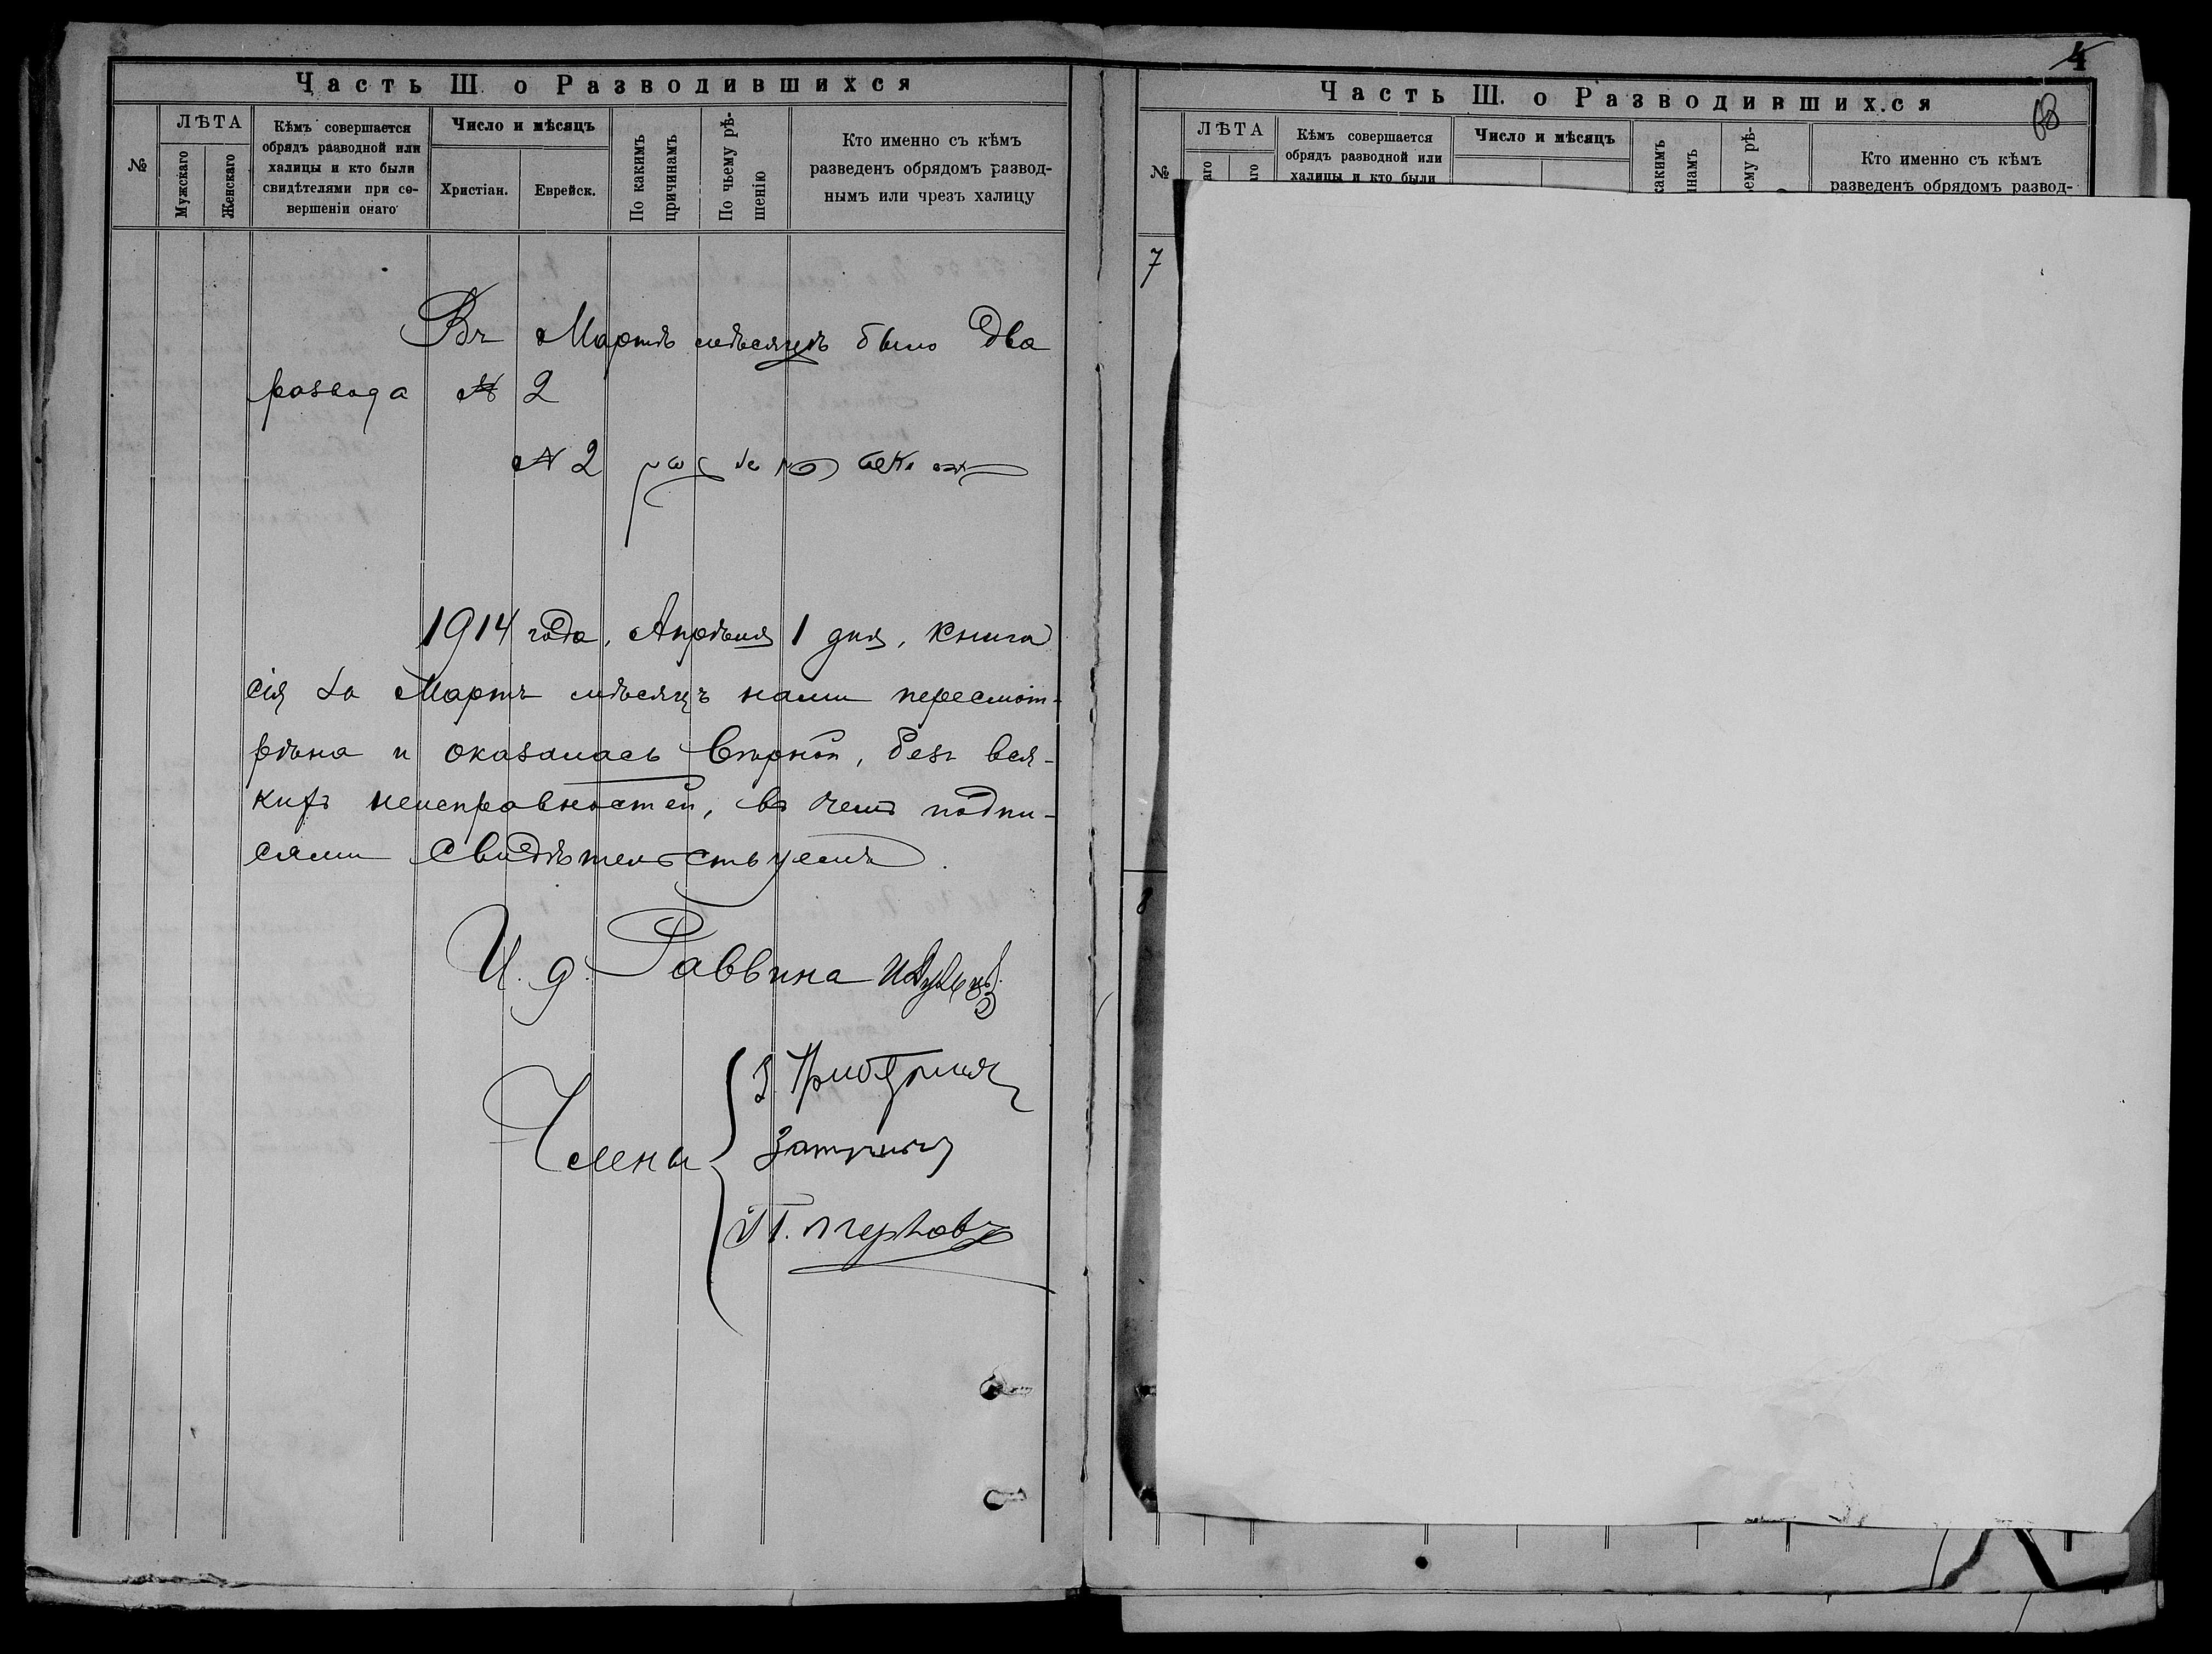 Часть III о Разводившихся
№
ЛѢТА
Мужскаго
Женскаго
Кѣмъ совершается
обрядъ разводной или
халицы и кто были
свидѣтелями при со-
вершеніи онаго
Число и мѣсяцъ
Христіан.
Еврейск.
По какимъ
причинамъ
По чьему рѣ-
шенію
Кто именно съ кѣмъ
разведенъ обрядомъ развод-
нымъ или чрезъ халицу
Въ Мартѣ мѣсяцѣ было два
развода № 2
№ 2
1914 года, Апрѣля 1 дня, книга
сія за Мартъ мѣсяцъ нами пересмот-
рѣна и оказалась вѣрной, безъ вся-
кихъ неисправностей, въ чемъ подпи-
сями свидѣтельствуемъ
И. д. Раввина
Члены
4
Часть III. о Разводившихся
68
№
ЛѢТА
аго
аго
Кѣмъ совершается
обрядъ разводной или
халицы и кто были
Число и мѣсяцъ
какимъ
инамъ
ему рѣ-
Кто именно съ кѣмъ
разведенъ обрядомъ развод-
7
8